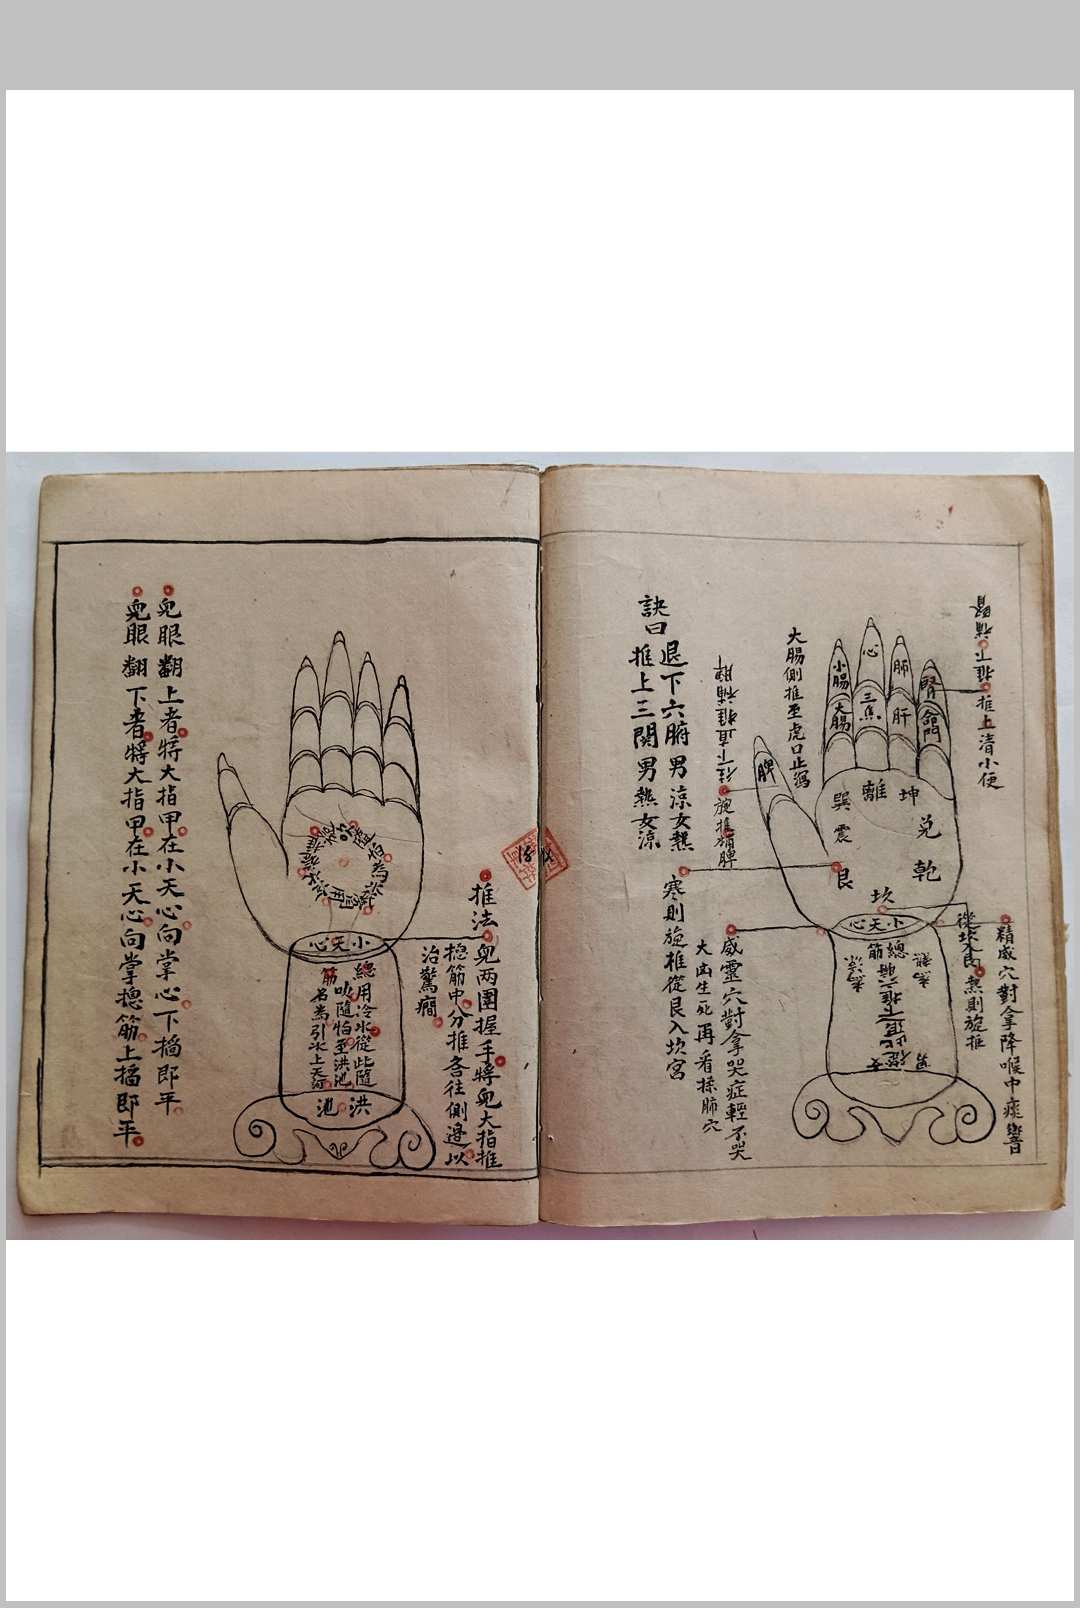 推下補腎
推上清小便
精威穴對拿降喉中痰響
從坎入艮
熱則旋推
腎
命門
肺
肝
心
三焦
小腸
大腸
脾
離
坤
兌
乾
坎
艮
震
巽
小天心
總筋
大腸側推至虎口止瀉
往下直推補脾
旋推
威靈穴對拿哭症輕不哭
大凶生死再看揉肺穴
寒則旋推從艮入坎宮
訣曰
退下六腑男涼女熱
推上三關男熱女涼
推法
兒兩圍握手將兒大指推
摠筋中分推各往側邊以
治驚癇
小天心
總筋
用冷水從此隨
吹隨拍至洪池
名為引水上天河
洪池
兒眼翻上者將大指甲在小天心向掌心下搯即平
兒眼翻下者將大指甲在小天心向掌摠筋上搯即平